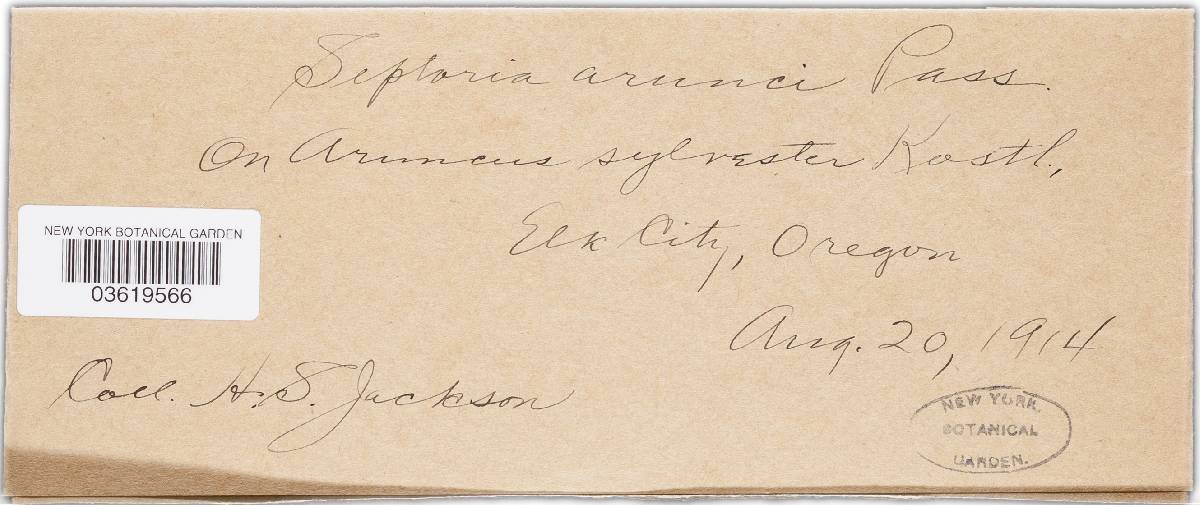 Septoria arunci Pass.
On Aruncus sylvester Kostl.,
Elk City, Oregon
Aug. 20, 1914
Coll. H. S. Jackson
NEW YORK BOTANICAL GARDEN
03619566
NEW YORK
BOTANICAL
GARDEN.